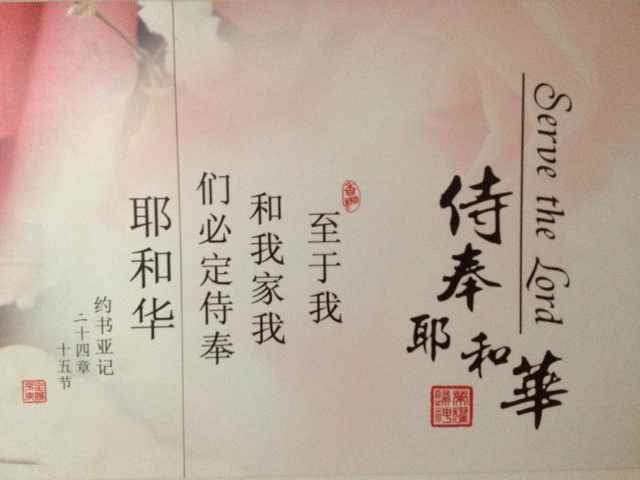 Serve the Lord
侍奉
耶和華
至于我
和我家我
们必定侍奉
耶和华
约书亚记
二十四章
十五节